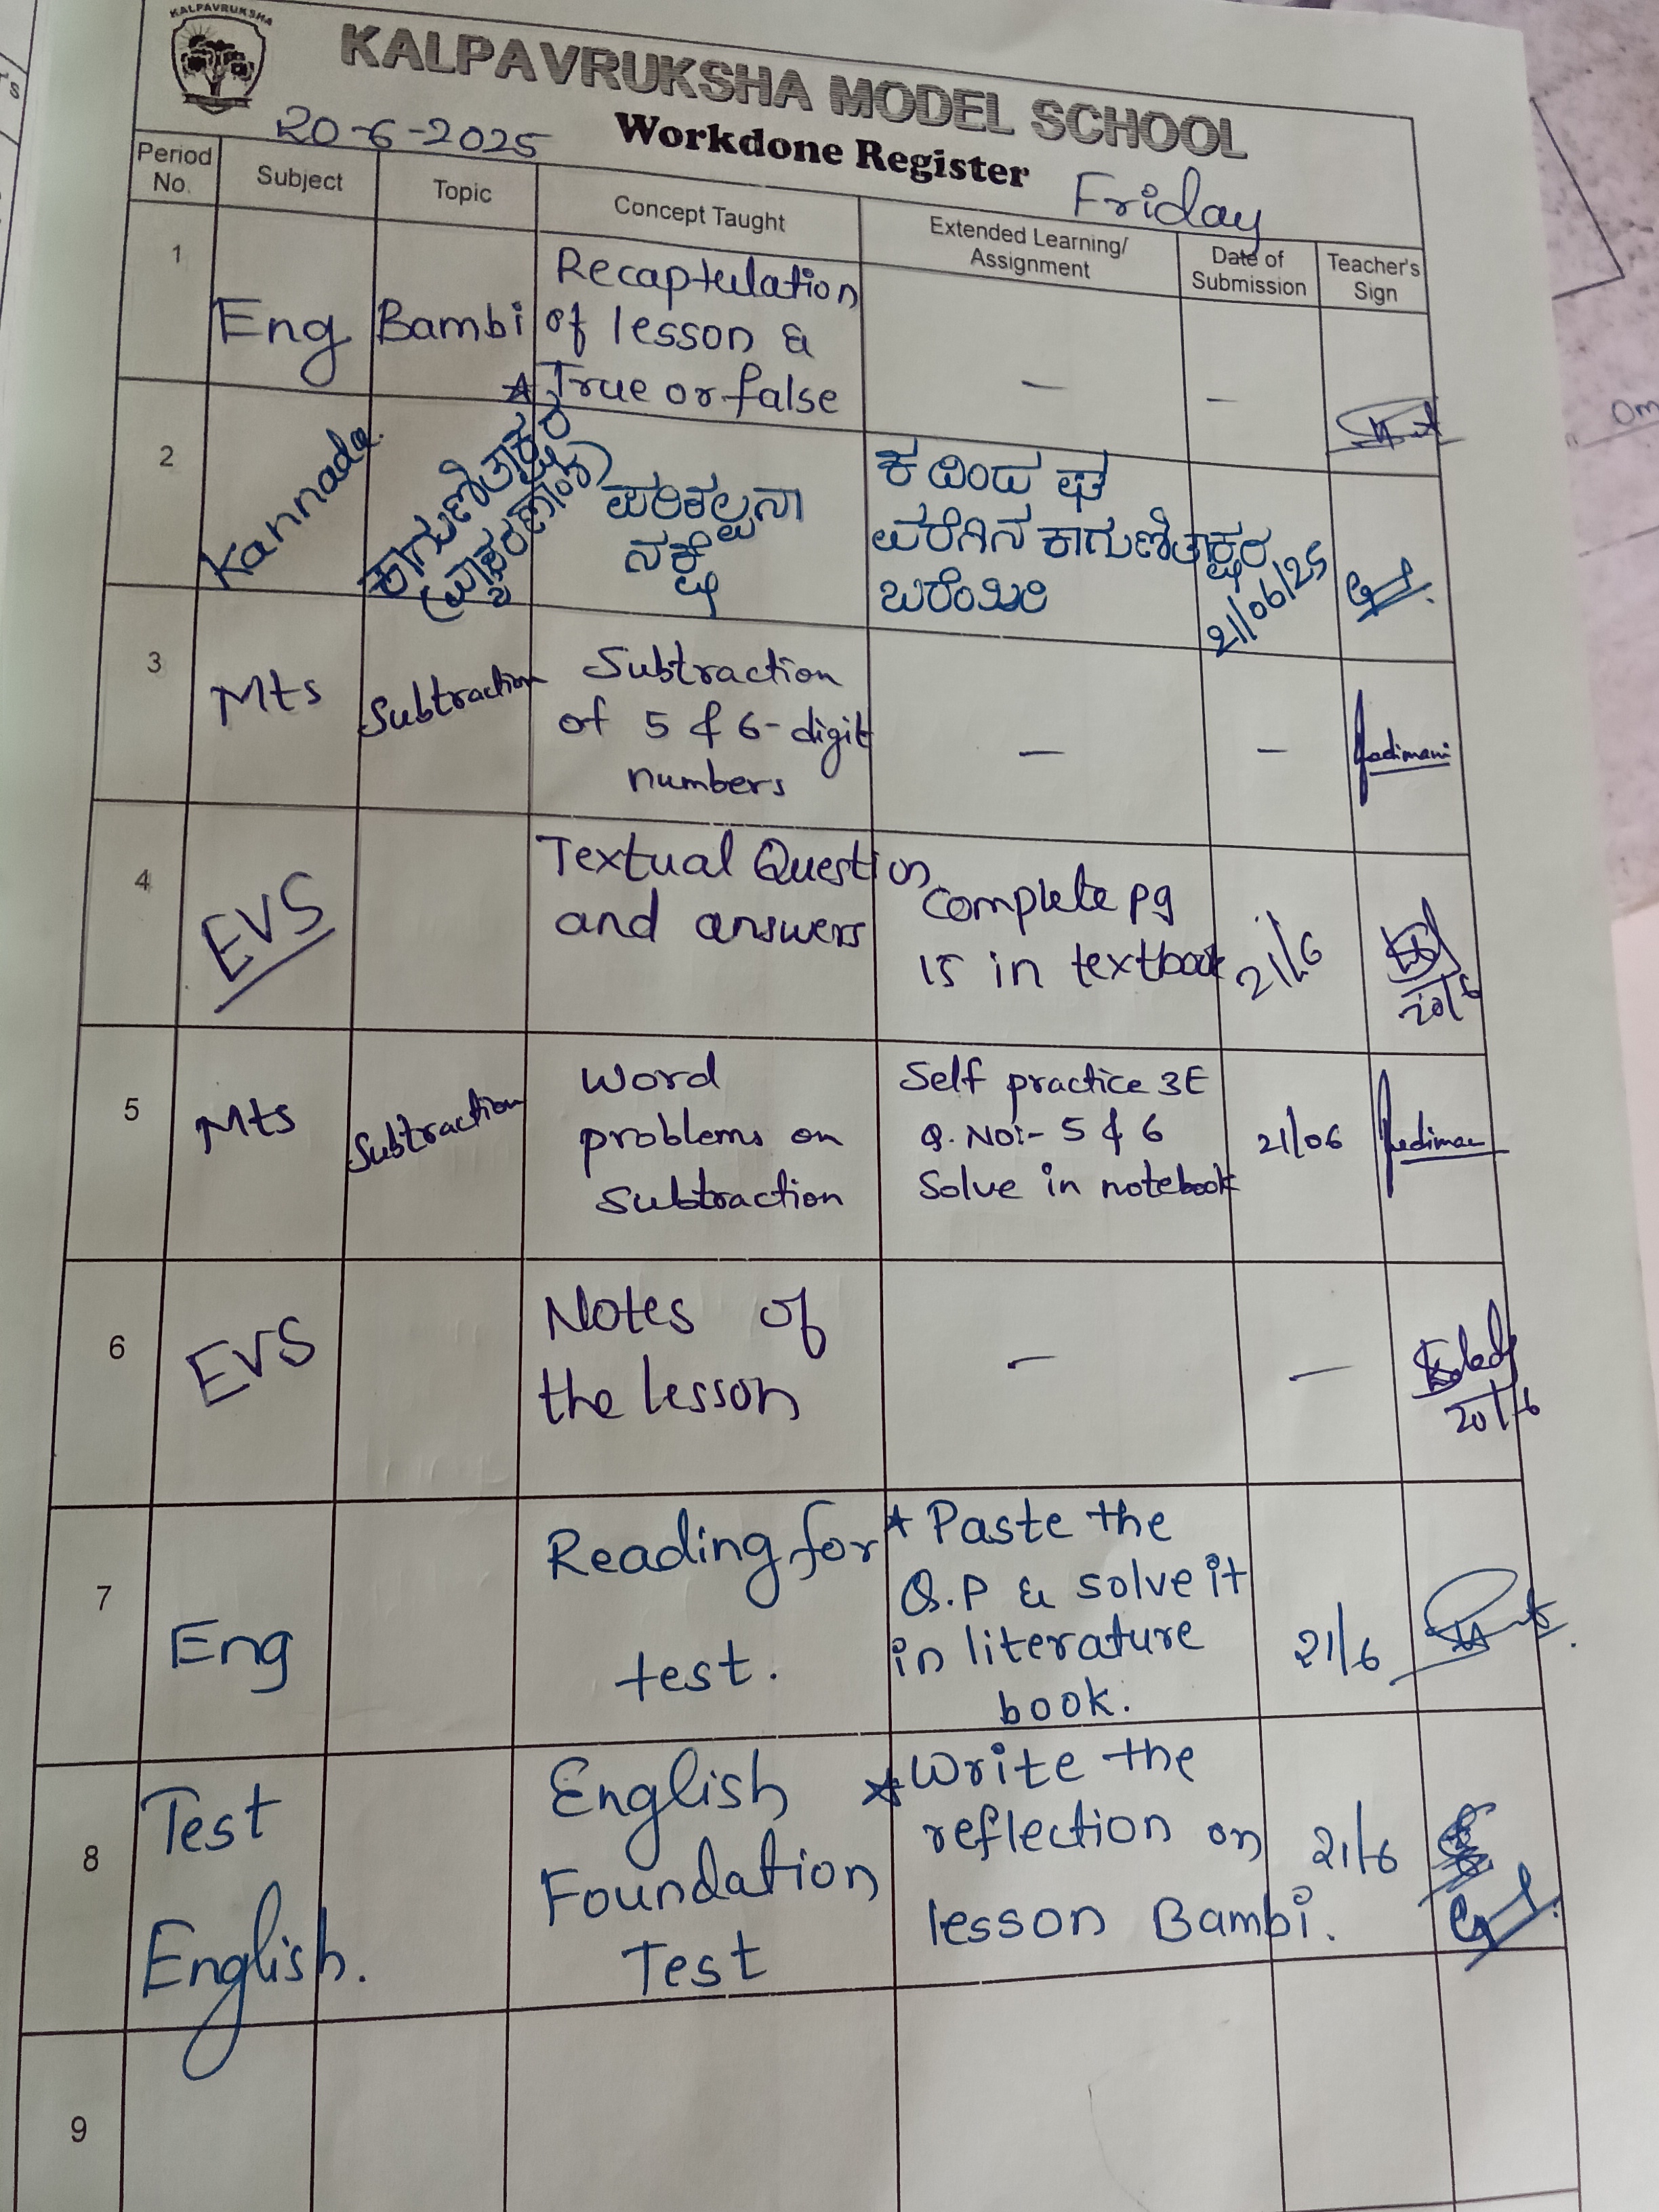 KALPAVRUKSHA
KALPAVRUKSHA MODEL SCHOOL
20-6-2025 Workdone Register Friday
Period No. Subject Topic Concept Taught Extended Learning/ Assignment Date of Submission Teacher's Sign
1 Eng Bambi Recaptulation
of lesson &
True or false — —
2 Kannada ಕಾಗುಣಿತಾಕ್ಷರ
ಪರಿಕಲ್ಪನಾ
ನಕ್ಷೆ
ಕ ದಿಂದ ಘ
ವರೆಗಿನ ಕಾಗುಣಿತಾಕ್ಷರ
ಬರೆಯಿರಿ
21/06/25
3 Mts Subtraction Subtraction
of 5 & 6-digit
numbers — —
4 EVS Textual Question
and answers
Complete pg
15 in textbook 21/6
20/6
5 Mts Subtraction Word
problems on
Subtraction
Self practice 3E
Q. No:- 5 & 6
Solve in notebook 21/06
6 EVS Notes of
the lesson — —
20/6
7 Eng Reading for
test.
* Paste the
Q.P & solve it
in literature
book. 21/6
8 Test
English.
English
Foundation
Test
* Write the
reflection on
lesson Bambi. 21/6
9